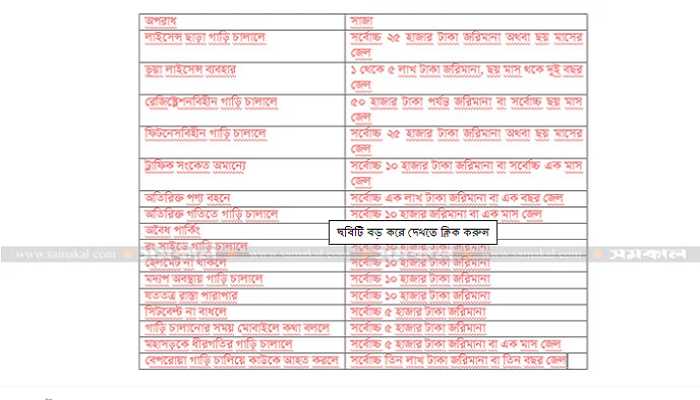 অপরাধ সাজা
লাইসেন্স ছাড়া গাড়ি চালালে সর্বোচ্চ ২৫ হাজার টাকা জরিমানা অথবা ছয় মাসের
জেল
ভুয়া লাইসেন্স ব্যবহার ১ থেকে ৫ লাখ টাকা জরিমানা, ছয় মাস থকে দুই বছর
জেল
রেজিস্ট্রেশনবিহীন গাড়ি চালালে ৫০ হাজার টাকা পর্যন্ত জরিমানা বা সর্বোচ্চ ছয় মাস
জেল
ফিটনেসবিহীন গাড়ি চালালে সর্বোচ্চ ২৫ হাজার টাকা জরিমানা অথবা ছয় মাসের
জেল
ট্রাফিক সংকেত অমান্যে সর্বোচ্চ ১০ হাজার টাকা জরিমানা বা সর্বোচ্চ এক মাস
জেল
অতিরিক্ত পণ্য বহনে সর্বোচ্চ এক লাখ টাকা জরিমানা বা এক বছর জেল
অতিরিক্ত গতিতে গাড়ি চালালে সর্বোচ্চ ১০ হাজার জরিমানা বা এক মাস জেল
অবৈধ পার্কিং
ছবিটি বড় করে দেখতে ক্লিক করুন
রং সাইডে গাড়ি চালালে সর্বোচ্চ ১০ হাজার টাকা জরিমানা
www.samakal.com সমকাল
হেলমেট না থাকলে সর্বোচ্চ ১০ হাজার টাকা জরিমানা
মদ্যপ অবস্থায় গাড়ি চালালে সর্বোচ্চ ১০ হাজার টাকা জরিমানা
যততত্র রাস্তা পারাপার সর্বোচ্চ ১০ হাজার টাকা জরিমানা
সিটবেল্ট না বাধলে সর্বোচ্চ ৫ হাজার টাকা জরিমানা
গাড়ি চালানোর সময় মোবাইলে কথা বললে সর্বোচ্চ ৫ হাজার টাকা জরিমানা
মহাসড়কে ধীরগতির গাড়ি চালালে সর্বোচ্চ ৫ হাজার টাকা জরিমানা বা এক মাস জেল
বেপরোয়া গাড়ি চালিয়ে কাউকে আহত করলে সর্বোচ্চ তিন লাখ টাকা জরিমানা বা তিন বছর জেল